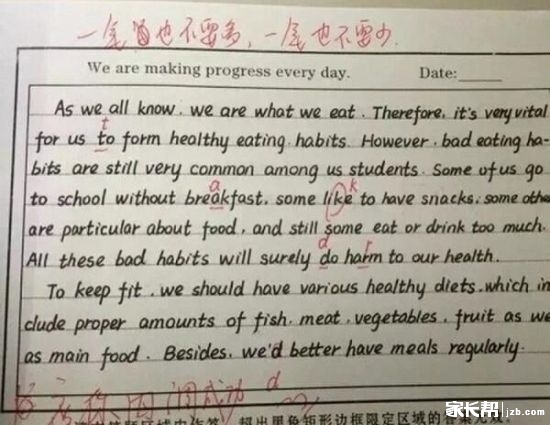 一定也不要多,一定也不要少.
We are making progress every day. Date:
As we all know, we are what we eat. Therefore, it's very vital
t
for us to form healthy eating habits. However, bad eating ha-
bits are still very common among us students. Some of us go
a k
to school without breakfast, some like to have snacks, some othe
are particular about food, and still some eat or drink too much.
d r
All these bad habits will surely do harm to our health.
To keep fit, we should have various healthy diets, which in
clude proper amounts of fish, meat, vegetables, fruit as we
as main food. Besides, we'd better have meals regularly.
d
超出黑色矩形边框限定区域的答案无效
家长帮 jzb.com